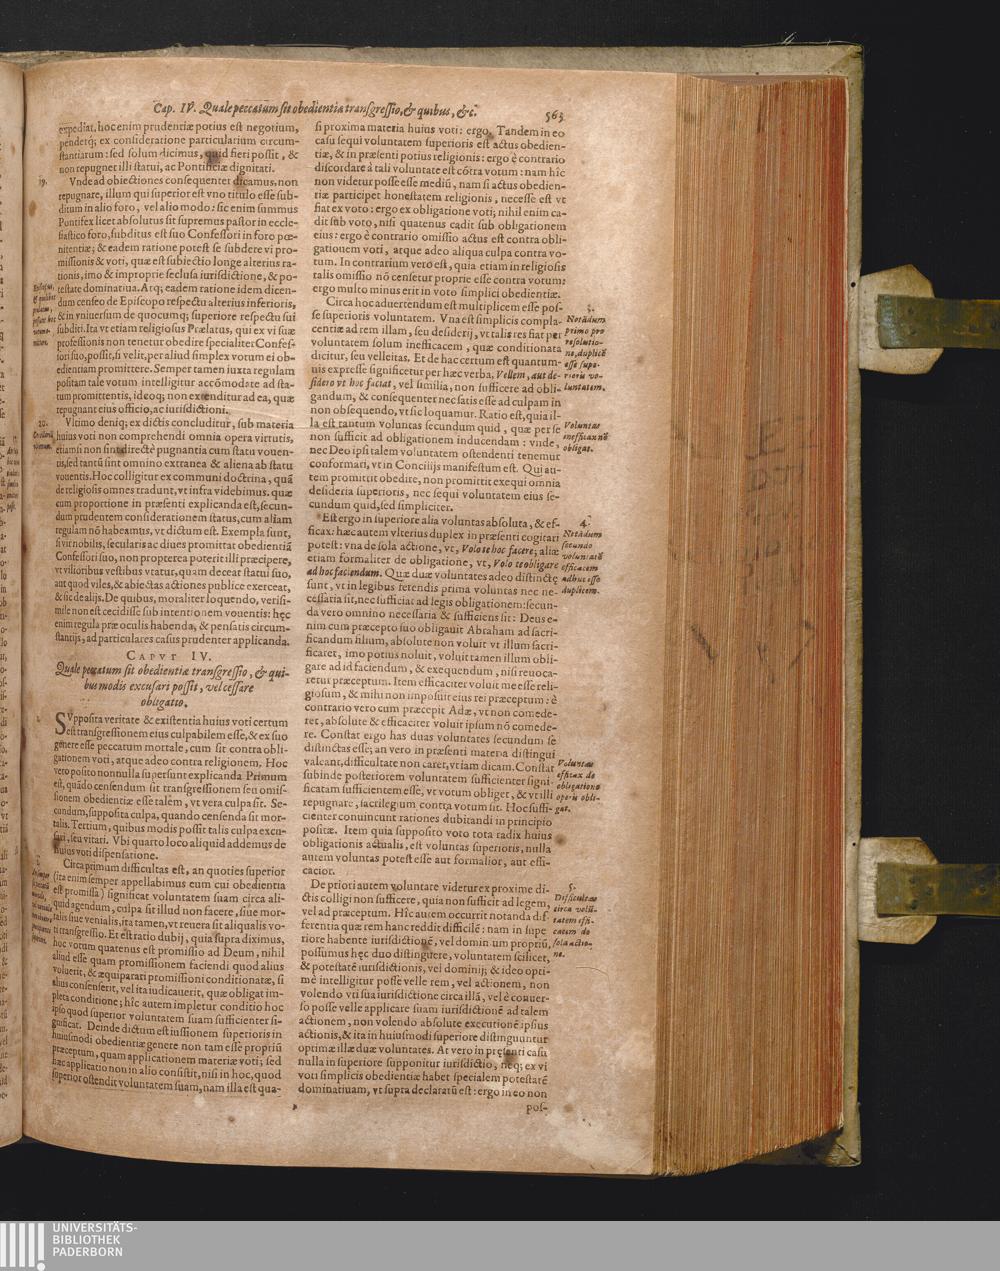 Cap. IV. Quale peccatum sit obedientiæ transgressio, & quibus, &c. 563
expediat, hoc enim prudentiæ potius est negotium,
pendetq; ex consideratione particularium circum-
stantiarum: sed solum dicimus, quid fieri possit, &
non repugnet illi statui, ac Pontificiæ dignitati.
19.
Vnde ad obiectiones consequenter dicamus, non
repugnare, illum qui superior est vno titulo esse sub-
ditum in alio foro, vel alio modo: sic enim summus
Pontifex licet absolutus sit supremus pastor in eccle-
siastico foro, subditus est suo Confessori in foro pœ-
nitentiæ; & eadem ratione potest se subdere vi pro-
missionis & voti, quæ est subiectio longe alterius ra-
tionis, imo & improprie seclusa iurisdictione, & po-
testate dominatiua. Atq; eadem ratione idem dicen-
dum censeo de Episcopo respectu alterius inferioris,
& in vniuersum de quocumq; superiore respectu sui
subditi. Ita vt etiam religiosus Prælatus, qui ex vi suæ
professionis non tenetur obedire specialiter Confes-
sori suo, possit, si velit, per aliud simplex votum ei ob-
edientiam promittere. Semper tamen iuxta regulam
positam tale votum intelligitur accõmodate ad sta-
tum promittentis, ideoq; non extenditur ad ea, quæ
repugnant eius officio, ac iurisdictioni.
20.
Vltimo deniq; ex dictis concluditur, sub materia
huius voti non comprehendi omnia opera virtutis,
etiamsi non sint directè pugnantia cum statu vouen-
tis, sed tantũ sint omnino extranea & aliena ab statu
vouentis. Hoc colligitur ex communi doctrina, quã
de religiosis omnes tradunt, vt infra videbimus. quæ
cum proportione in præsenti explicanda est, secun-
dum prudentem considerationem status, cum aliam
regulam nõ habeamus, vt dictum est. Exempla sunt,
si vir nobilis, secularis ac diues promittat obedientiã
Confessori suo, non propterea poterit illi præcipere,
vt vilioribus vestibus vtatur, quam deceat statui suo,
aut quod viles, & abiectas actiones publice exerceat,
& sic de alijs. De quibus, moraliter loquendo, verisi-
mile non est cecidisse sub intentionem vouentis: hęc
enim regula præ oculis habenda, & pensatis circum-
stantijs, ad particulares casus prudenter applicanda.
CAPVT IV.
Quale peccatum sit obedientiæ transgressio, & qui-
bus modis excusari possit, vel cessare
obligatio.
SVpposita veritate & existentia huius voti certum
est transgressionem eius culpabilem esse, & ex suo
genere esse peccatum mortale, cum sit contra obli-
gationem voti, atque adeo contra religionem. Hoc
vero posito nonnulla supersunt explicanda Primum
est, quãdo censendum sit transgressionem seu omis-
sionem obedientiæ esse talem, vt vera culpa sit. Se-
cundum, supposita culpa, quando censenda sit mor-
talis. Tertium, quibus modis possit talis culpa excu-
sari, seu vitari. Vbi quarto loco aliquid addemus de
huius voti dispensatione.
Circa primum difficultas est, an quoties superior
(ita enim semper appellabimus eum cui obedientia
est promissa) significat voluntatem suam circa ali-
quid agendum, culpa sit illud non facere, siue mor-
talis siue venialis, ita tamen, vt reuera sit aliqualis vo-
ti transgressio. Et est ratio dubij, quia supra diximus,
hoc votum quatenus est promissio ad Deum, nihil
aliud esse quam promissionem faciendi quod alius
voluerit, & æquiparari promissioni conditionatæ, si
alius consenserit, vel ita iudicauerit, quæ obligat im-
pleta conditione; hîc autem impletur conditio hoc
ipso quod superior voluntatem suam sufficienter si-
gnificat. Deinde dictum est iussionem superioris in
huiusmodi obedientiæ genere non tam esse propriũ
præceptum, quam applicationem materiæ voti; sed
hæc applicatio non in alio consistit, nisi in hoc, quod
superior ostendit voluntatem suam, nam illa est qua-
si proxima materia huius voti: ergo. Tandem in eo
casu sequi voluntatem superioris est actus obedien-
tiæ, & in præsenti potius religionis: ergo è contrario
discordare à tali voluntate est cõtra votum: nam hîc
non videtur posse esse mediũ, nam si actus obedien-
riæ participet honestatem religionis, necesse est vt
fiat ex voto: ergo ex obligatione voti; nihil enim ca-
dit sub voto, nisi quatenus cadit sub obligationem
eius: ergo è contrario omissio actus est contra obli-
gationem voti, atque adeo aliqua culpa contra vo-
tum. In contrarium vero est, quia etiam in religiosis
talis omissio nõ censetur proprie esse contra votum:
ergo multo minus erit in voto simplici obedientiæ.
Circa hoc aduertendum est multiplicem esse pos-
se superioris voluntatem. Vna est simplicis compla-
centiæ ad rem illam, seu desiderij, vt talis res fiat per
voluntatem solum inefficacem, quæ conditionata
dicitur, seu velleitas. Et de hac certum est quantum-
uis expresse significetur per hæc verba, Vellem, aut de-
sidero vt hoc faciat, vel similia, non sufficere ad obli-
gandum, & consequenter nec satis esse ad culpam in
non obsequendo, vt sic loquamur. Ratio est, quia il-
la est tantum voluntas secundum quid, quæ per se
non sufficit ad obligationem inducendam: vnde,
nec Deo ipsi talem voluntatem ostendenti tenemur
conformari, vt in Concilijs manifestum est. Qui au-
tem promittit obedire, non promittit exequi omnia
desideria superioris, nec sequi voluntatem eius se-
cundum quid, sed simpliciter.
Est ergo in superiore alia voluntas absoluta, & ef-
ficax: hæc autem vlterius duplex in præsenti cogitari
potest: vna de sola actione, vt, Volo te hoc facere; aliæ
etiam formaliter de obligatione, vt, Volo te obligare
ad hoc faciendum. Quæ duæ voluntates adeo distinctę
sunt, vt in legibus ferendis prima voluntas nec ne-
cessaria sit, nec sufficiat ad legis obligationem: secun-
da vero omnino necessaria & sufficiens sit: Deus e-
nim cum præcepto suo obligauit Abraham ad sacri-
ficandum filium, absolute non voluit vt illum sacri-
ficaret, imo potius noluit, voluit tamen illum obli-
gare ad id faciendum, & exequendum, nisi reuoca-
retur præceptum. Item efficaciter voluit me esse reli-
giosum, & mihi non imposuit eius rei præceptum: è
contrario vero cum præcepit Adæ, vt non comede-
ret, absolute & efficaciter voluit ipsum nõ comede-
re. Constat ergo has duas voluntates secundum se
distinctas esse; an vero in præsenti materia distingui
valeant, difficultate non caret, vt iam dicam. Constat
subinde posteriorem voluntatem sufficienter signi-
ficatam sufficientem esse, vt votum obliget, & vt illi
repugnare, sacrilegum contra votum sit. Hoc suffi-
cienter conuincunt rationes dubitandi in principio
positæ. Item quia supposito voto tota radix huius
obligationis actualis, est voluntas superioris, nulla
autem voluntas potest esse aut formalior, aut effi-
cacior.
De priori autem voluntate videtur ex proxime di-
ctis colligi non sufficere, quia non sufficit ad legem,
vel ad præceptum. Hîc autem occurrit notanda dif-
ferentia quæ rem hanc reddit difficilẽ: nam in supe-
riore habente iurisdictionẽ, vel dominium propriũ,
possumus hęc duo distinguere, voluntatem scilicet,
& potestatẽ iurisdictionis, vel dominij; & ideo opti-
mè intelligitur posse velle rem, vel actionem, non
volendo vti sua iurisdictione circa illã, vel è conuer-
so posse velle applicare suam iurisdictionẽ ad talem
actionem, non volendo absolute executionẽ ipsius
actionis, & ita in huiusmodi superiore distinguuntur
optimæ illæ duæ voluntates. At vero in pręsenti casu
nulla in superiore supponitur iurisdictio, neq; ex vi
voti simplicis obedientiæ habet specialem potestatẽ
dominatiuam, vt supra declaratũ est: ergo in eo non
pos-
3.
Notãdum
primo pro
resolutio-
ne, duplicẽ
esse supe-
rioris vo-
luntatem.
Voluntas
inefficax nõ
obligat.
4.
Notãdum
secundo
voluntatẽ
efficacem
adhuc esse
duplicem.
Voluntas
efficax de
obligatione
operis obli-
gat.
5.
Difficultas
circa volũ-
tatem effi-
cacem de
sola actio-
ne.
UNIVERSITÄTS-
BIBLIOTHEK
PADERBORN